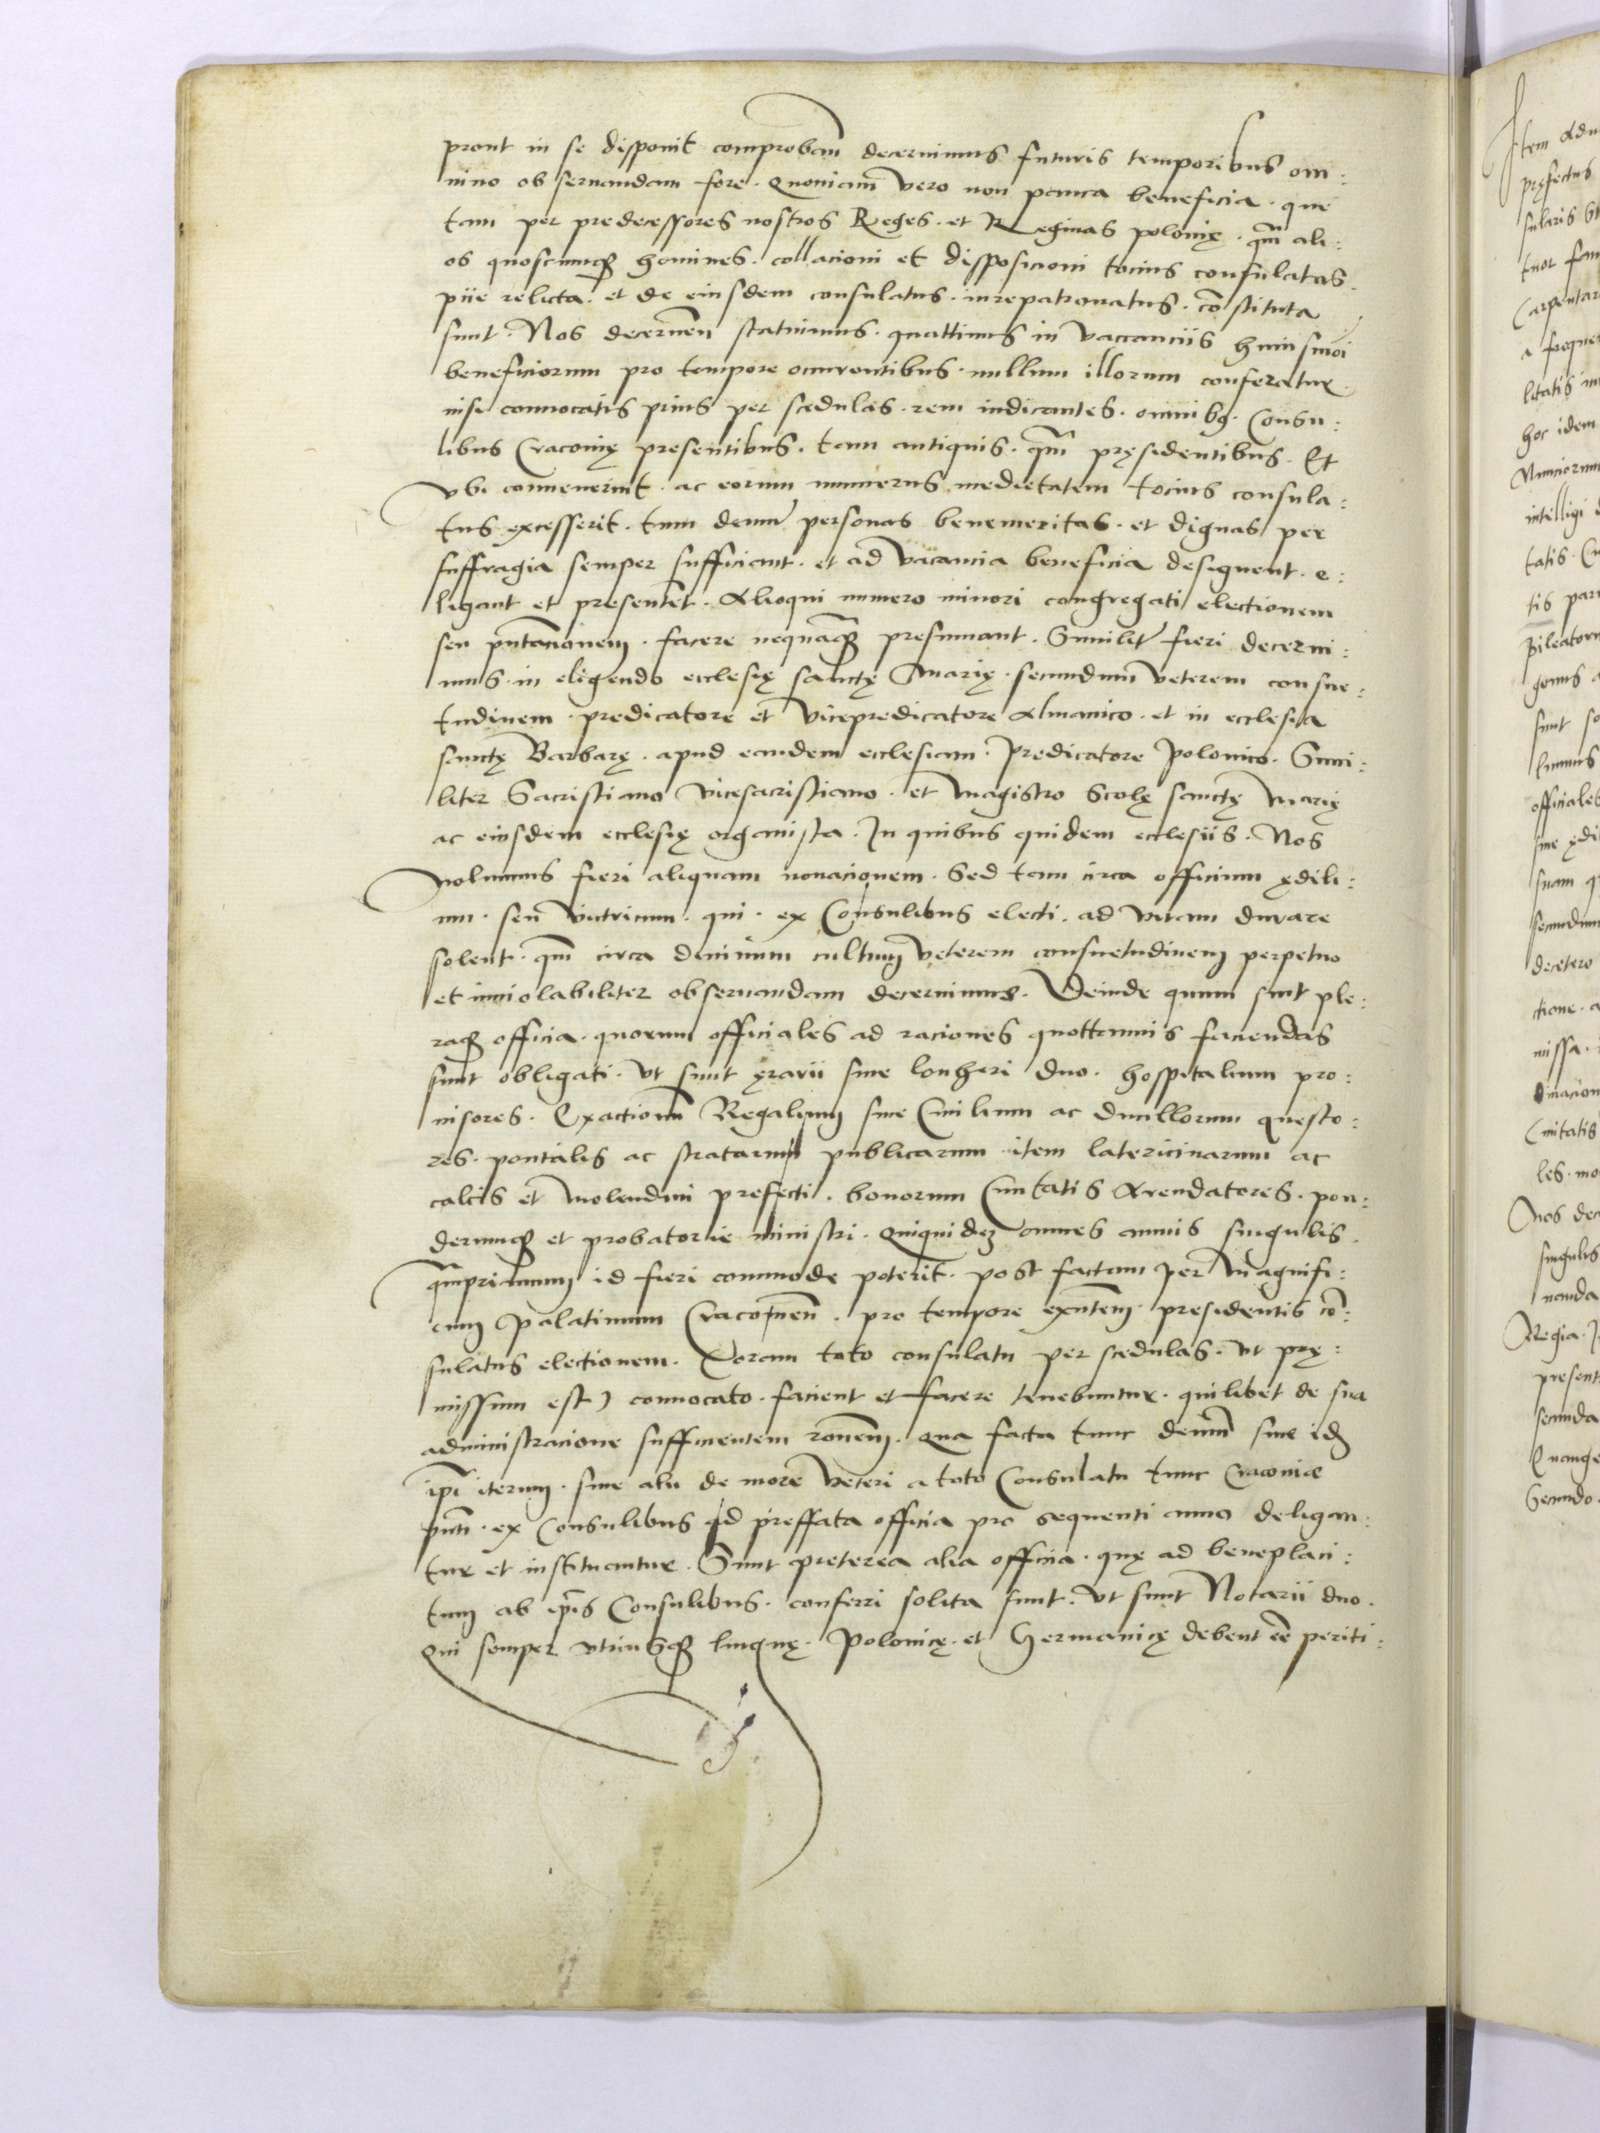 prout in se disponit comprobam̄ decernimus futuris temporibus om:
nino observandam fore. Quoniam vero non pauca beneficia. que
tam per predecessores nostros Reges. et Reginas polonię. qm̄ ali:
os quoscumq̨ homines. collacioni et disposicioni tocius consulatus.
piie relicta. et de eiusdem consulatus. iurepatronatus. cōstituta
sunt. Nos decernen̄ statuimus. quattinus in vaccanciis huiusmōi
beneficiorum pro tempore occurrentibus. nullum illorum conferatur.
nisi convocatis prius per scedulas. rem indicantes. omnibꝯ. Consu:
libus Cracovię presentibus. tam antiquis. qm̄ pręsidentibus. Et
vbi convenerint. ac eorum numerus medietatem tocius consula:
tus excesserit. tum demū personas benemeritas. et dignas per
suffragia semper sufficiant. et ad vacancia beneficia designent. e:
ligant et presentēt. Alioqui numero minori congregati electionem
seu pn̄tacionem. facere nequaq̨ presumant. Similit̄ fieri decerni:
mus. in eligendo ecclesię sanctę Marię. secundum veterem consue:
tudinem. predicatore et vicepredicatore Almanico. et in ecclesia
sanctę Barbarę. apud eandem ecclesiam. Predicatore Polonico. Simi:
liter Sacristiano vicesacristiano. et Magistro Scolę sanctę Marię
ac eiusdem ecclesię organista. In quibus quidem ecclesiis. Nos
nolumus fieri aliquam novacionem. Sed tam circa officium ędili:
um. seu vitricum. qui. ex Consulibus electi. ad vitam durare
solent. qm̄ circa divinum cultum veterem consuetudinem perpetuo
et inviolabiliter observandam decernimus. Deinde quum sint ple:
raq̨ officia. quorum officiales ad raciones quottannis faciendas
sunt obligati. Vt sunt ęrarii sive lonheri duo. hospitalium pro:
visores. Exactionū Regalium sive Civilium ac duillorum questo:
res. pontalis ac stratarum publicarum item latericinarum ac
calcis et molendini prefecti. bonorum Civitatis Arendatores. pon:
derumq̨ et probatorie ministri. Quiquidē omnes annis singulis.
q̄mprimum id fieri commode poterit. post factam per Magnifi:
cum Palatinum Cracovien̄. pro tempore exn̄tem presidentis cō:
sulatus electionem. Coram toto consulatu per scedulas. vt prę:
missum est) convocato. facient et facere tenebuntur. quilibet de sua
administracione sufficientem rōnem. Qua facta tunc demum sive idē
ip̄i iterum. sive alii de more veteri a toto Consulatu tunc Cracovie
pn̄ti. ex Consulibus ad preffata officia pro sequenti anno deligan:
tur et instituantur. Sunt preterea alia officia. quę ad beneplaci:
tum ab ip̄is Consulibus. conferri solita sunt. Vt sunt Notarii duo.
Qui semper vtriusq̨ linguę. Polonicę. et Germanicę debent eē periti: